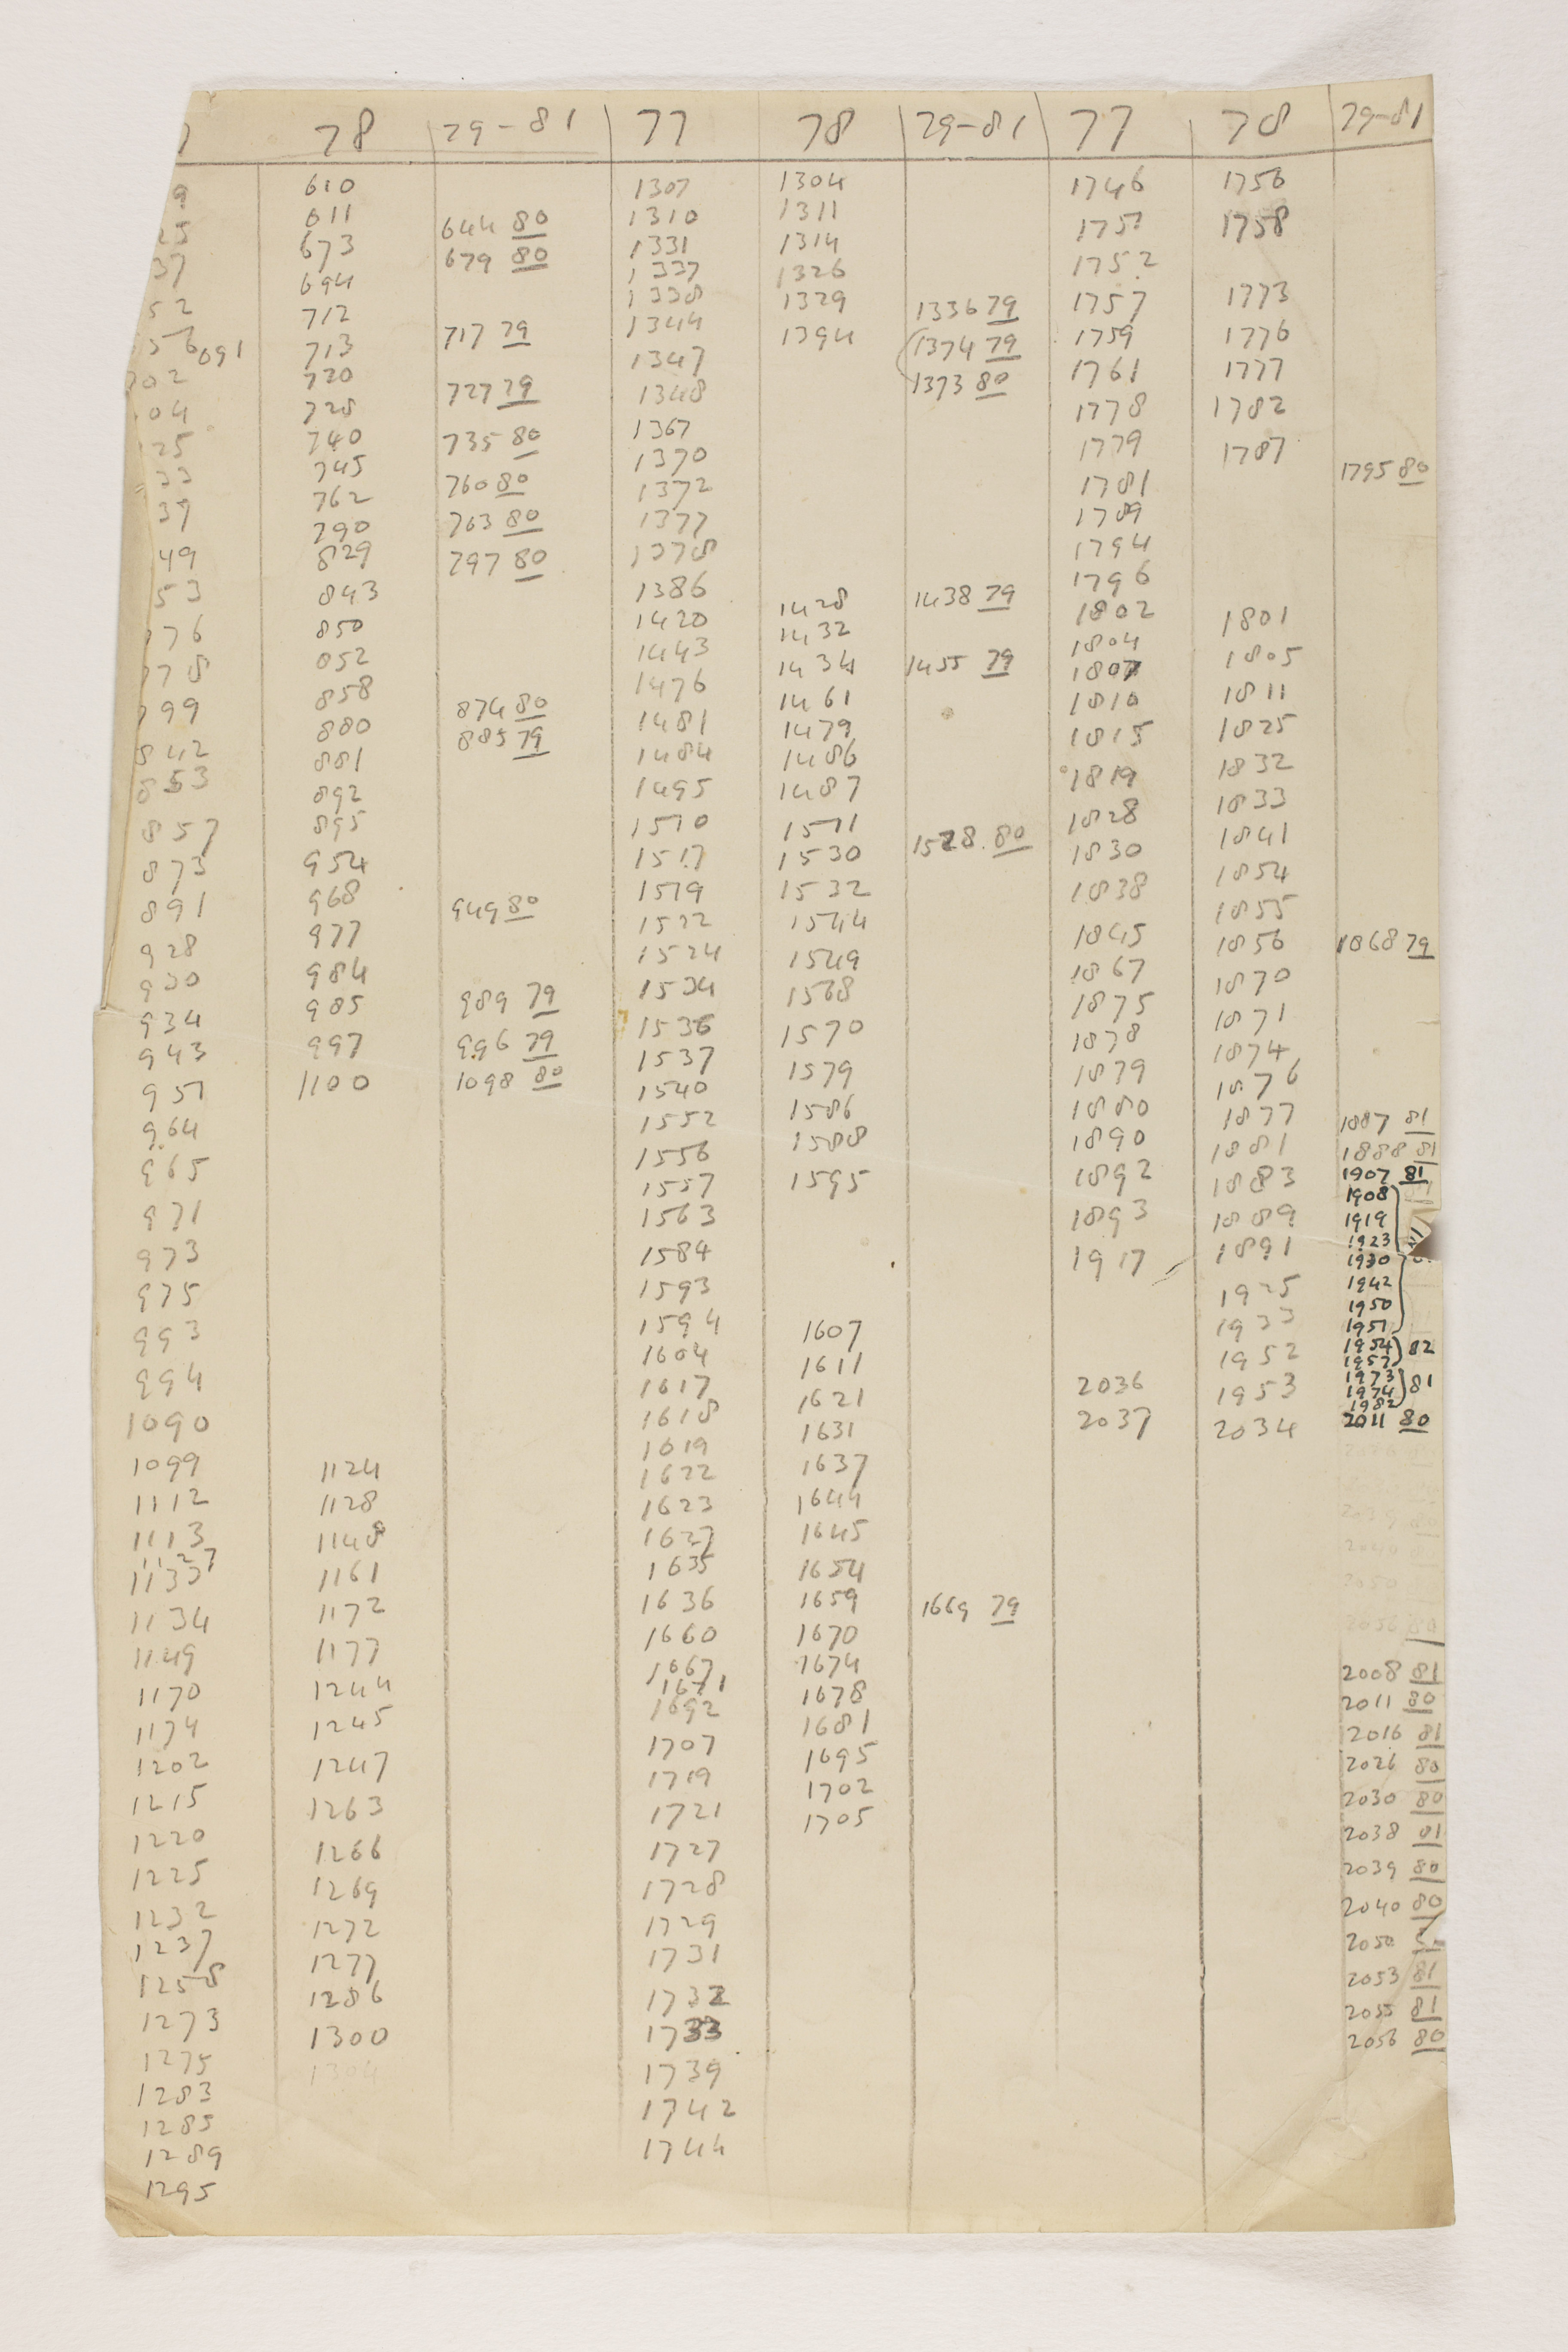 7 78 79-81 77 78 79-81 77 78 79-81
9 610 1307 1304 1746 1756
25 611 644 80 1310 1311 1758
37 673 679 80 1331 1314 1752
52 694 1337 1326 1757 1773
712 717 79 1338 1329 1336 79 1759 1776
091 713 1344 1394 1374 79 1761 1777
02 720 727 79 1347 1373 80 1778 1782
04 728 1348 1779 1787
25 740 735 80 1367 1781 1795 80
33 745 760 80 1370 1789
37 762 763 80 1372 1794
49 790 797 80 1377 1796
53 829 1378 1802 1801
776 843 1386 1428 1438 79 1804 1805
778 850 1420 1432 1807 1811
799 852 1443 1434 1455 79 1810 1825
842 858 874 80 1476 1461 1815 1832
853 880 885 79 1481 1479 1819 1833
857 881 1484 1486 1828 1841
873 892 1495 1487 1830 1854
891 895 1510 1511 1528.80 1838 1855
928 954 1517 1530 1845 1856 1868 79
930 968 949 80 1519 1532 1867 1870
934 977 1522 1544 1875 1871
943 984 1524 1549 1878 1874
951 985 989 79 1534 1568 1879 1876
964 997 996 79 1536 1570 1880 1877 1887 81
965 1100 1098 80 1537 1579 1890 1881 1888 81
971 1540 1586 1892 1883 1907 81
973 1552 1588 1893 1889 1908
975 1556 1595 1917 1891 1919
993 1557 1925 1923
994 1563 1933 1930
1090 1584 1952 1942
1099 1124 1593 2036 1953 1950
1112 1128 1594 1607 2037 2034 1951
1113 1148 1604 1611 1954 82
1127 1161 1617 1621 1957
1133 1172 1618 1631 1973 81
1134 1177 1619 1637 1974
1149 1244 1622 1644 1982
1170 1245 1623 1645 2011 80
1174 1247 1627 1654
1202 1263 1635 1659 1669 79 2056 80
1215 1266 1636 1670 2008 81
1220 1269 1660 1674 2011 80
1225 1272 1667 1678 2016 81
1232 1277 1671 1681 2026 80
1237 1286 1692 1695 2030 80
1258 1300 1707 1702 2038 81
1273 1304 1719 1705 2039 80
1275 1721 2040 80
1283 1727 2050
1285 1728 2053 81
1289 1729 2055 81
1295 1731 2056 80
1732
1733
1739
1742
1744